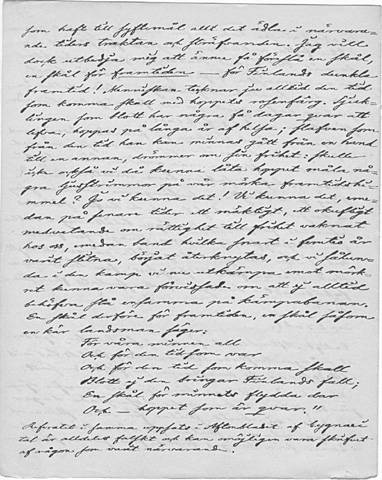 som haft till syftemål allt det ädla i närvaran-
nde tiders traktan och sträfvanden. Jag vill
dock utbedja mig att ännu få föreslå en skål,
en skål för framtiden — för Finlands dunkla
framtid! Menniskan tecknar ju alltid den tid
som komma skall med hoppets rosenfärg. Sjuk-
lingen som blott har några få dagar qvar att
lefva, hoppas på långa år af helsa; slafven som
från den tid han kan minnas gått från en hand
till en annan, drömmer om sin frihet: skulle
icke också vi då kunna låta hoppet måla nå-
gra ljusstrimmor på vår mörka framtidshim-
mel? Jo vi kunna det! Vi kunna det, me-
dan på senare tider ett mäktigt, ett okufligt
medvetande om rättighet till frihet vaknat
hos oss, medan band hvilka snart i femtio år
varit slitna, börjat återknytas, och vi således
i den kamp vi nu utkämpa mot mörk-
ret kunna vara förvissade om att ej alltid
behöfva stå ensamma på kämpabanan.
En skål derföre för framtiden, en skål såsom
en kär landsman säger:
För våra minnen all
Och för den tid som var
Och för den tid som komma skall
Blott ej den bringar Finlands fall;
En skål för minnets flydda dar
Och — hoppet som är qvar."
Referatet i samma uppsats i Aftonbladet af
tal är alldeles falskt och kan möjligen vara skrifvet
af någon som varit närvarande.